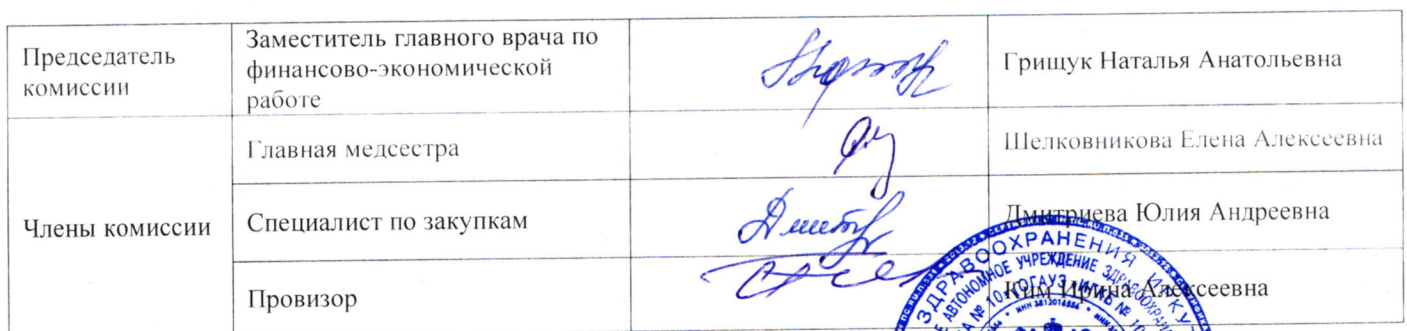 Председатель комиссии
Заместитель главного врача по финансово-экономической работе
Грищук Наталья Анатольевна
Члены комиссии
Главная медсестра
Шелковникова Елена Алексеевна
Специалист по закупкам
Дмитриева Юлия Андреевна
Провизор
Ким Ирина Алексеевна
ЗДРАВООХРАНЕНИЯ ИРКУ
АВТОНОМНОЕ УЧРЕЖДЕНИЕ ЗДРАВООХРАНЕ
№ 10» (ОГАУЗ «ИГКБ № 10
ИНН 3812014556